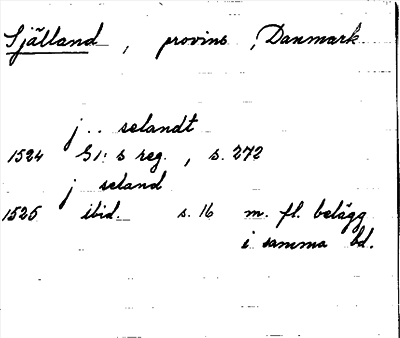 Själland, provins, Danmark
j .. selandt
1524 G1:s reg., s. 272
j seland
1525 ibid. s. 16 m. fl. belägg
i samma bd.